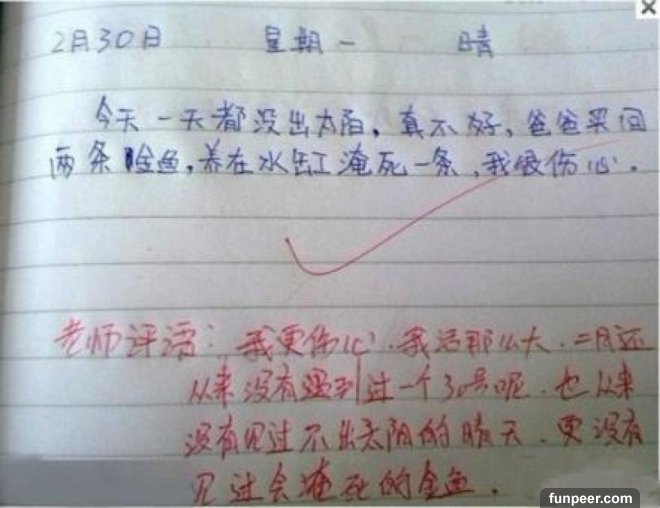 2月30日 星期一 晴
今天一天都没出太阳，真不好，爸爸买回
两条金鱼，养在水缸淹死一条，我很伤心。
老师评语：我更伤心．我活那么大．二月还
从来没有遇到过一个30号呢．也从来
没有见过不出太阳的晴天．更没有
见过会淹死的金鱼．
funpeer.com